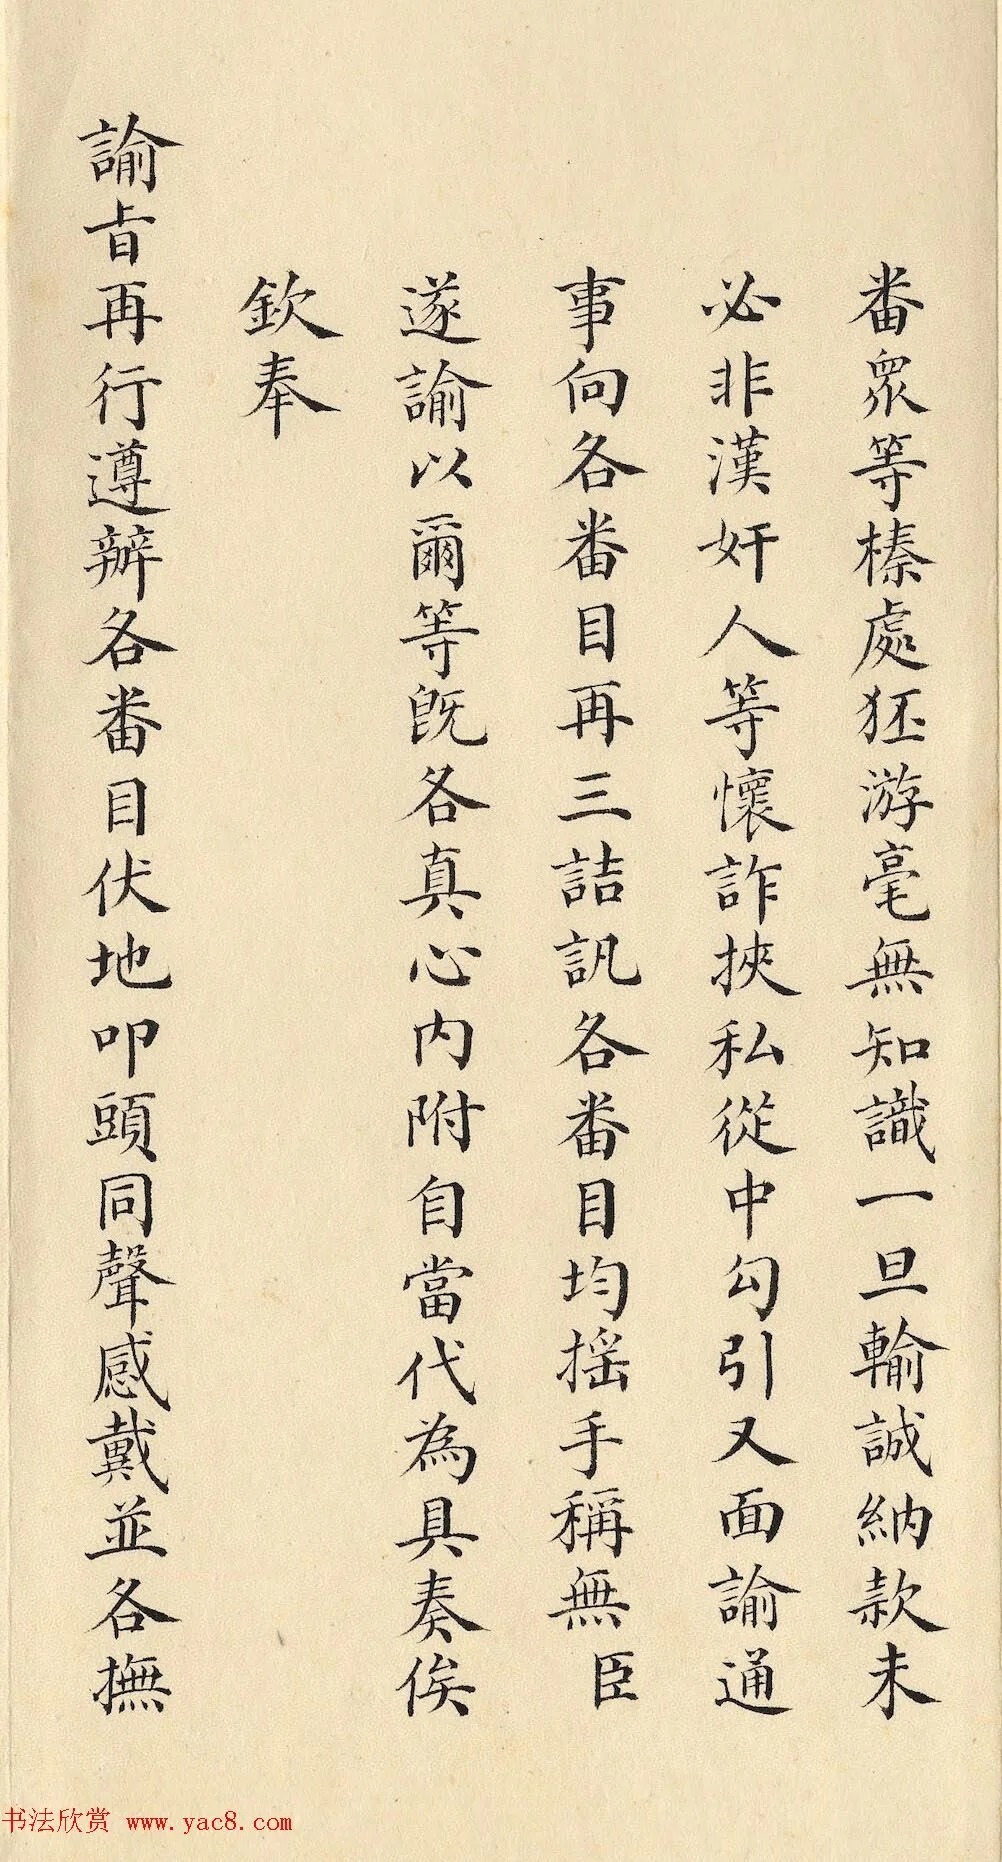 番眾等榛處狉游毫無知識一旦輸誠納款未
必非漢奸人等懷詐挾私從中勾引又面諭通
事向各番目再三詰訊各番目均搖手稱無臣
遂諭以爾等既各真心內附自當代為具奏俟
欽奉
諭旨再行遵辦各番目伏地叩頭同聲感戴並各撫
书法欣赏 www.yac8.com